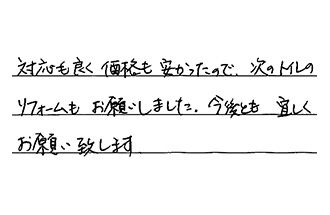 対応も良く価格も安かったので、次のトイレの
リフォームもお願いしました。今後とも宜しく
お願い致します